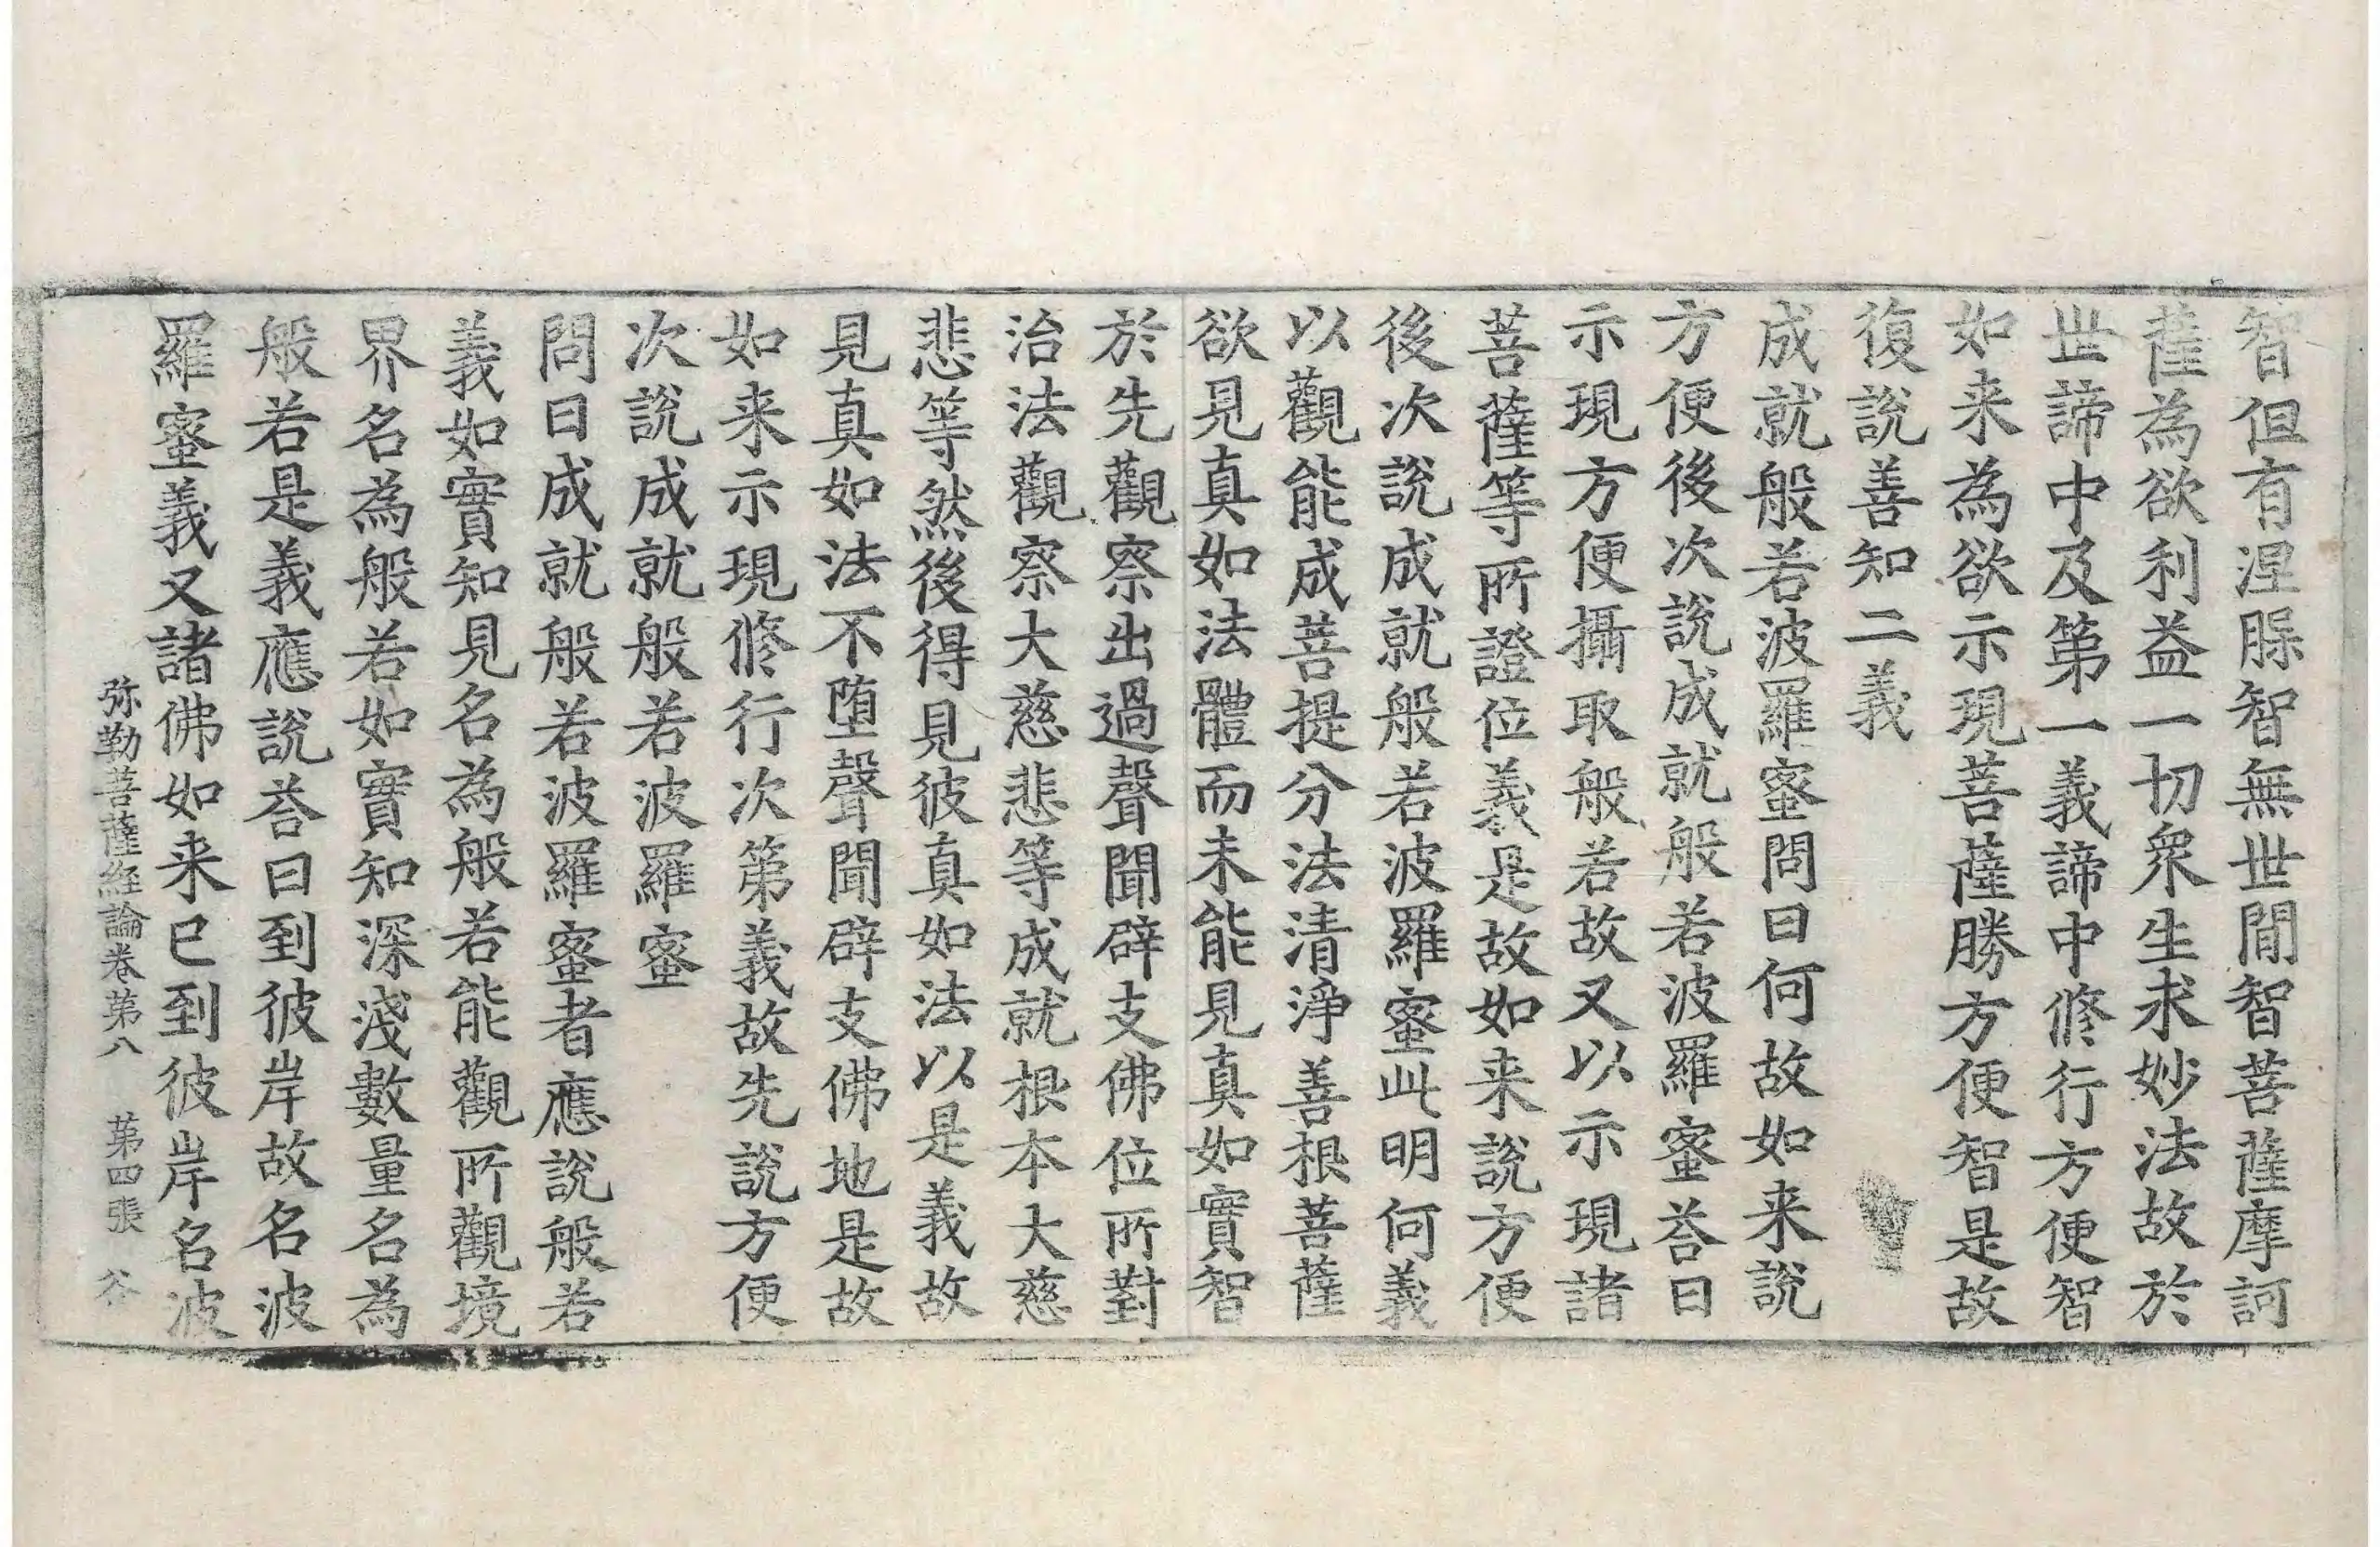 智但有涅脵智無世間智菩薩摩訶
薩為欲利益一切衆生求妙法故於
世諦中及第一義諦中修行方便智
如来為欲示現菩薩勝方便智是故
復說善知二義
成就般若波羅蜜問曰何故如来說
方便後次說成就般若波羅蜜荅曰
示現方便攝取般若故又以示現諸
菩薩等所證位義是故如来說方便
後次說成就般若波羅蜜此明何義
以觀能成菩提分法清淨善根菩薩
欲見真如法體而未能見真如實智
於先觀察出過聲聞辟支佛位所對
治法觀察大慈悲等成就根本大慈
悲等然後得見彼真如法以是義故
見真如法不堕聲聞辟支佛地是故
如来示現修行次第義故先說方便
次說成就般若波羅蜜
問曰成就般若波羅蜜者應說般若
義如實知見名為般若能觀所觀境
界名為般若如實知深淺數量名為
般若是義應說荅曰到彼岸故名波
羅蜜義又諸佛如来已到彼岸名波
弥勒菩薩経論卷第八 第四張 谷